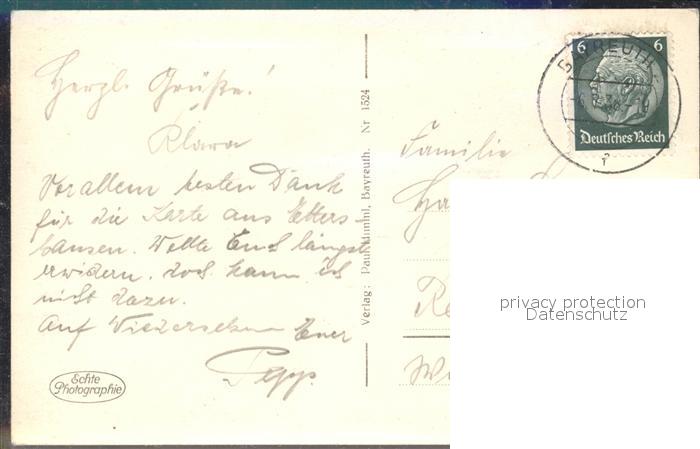 Herzl. Grüße!
Klara
Vor allem besten Dank
für die Karte aus Etters-
hausen. Wollte Euch längst
erwidern, doch kam ich
nicht dazu.
Auf Wiedersehen Euer
Pepp.
Echte
Photographie
Verlag: Paul Bayreuth. Nr 1524
Familie
BAYREUTH
6 6
Deutsches Reich
privacy protection
Datenschutz